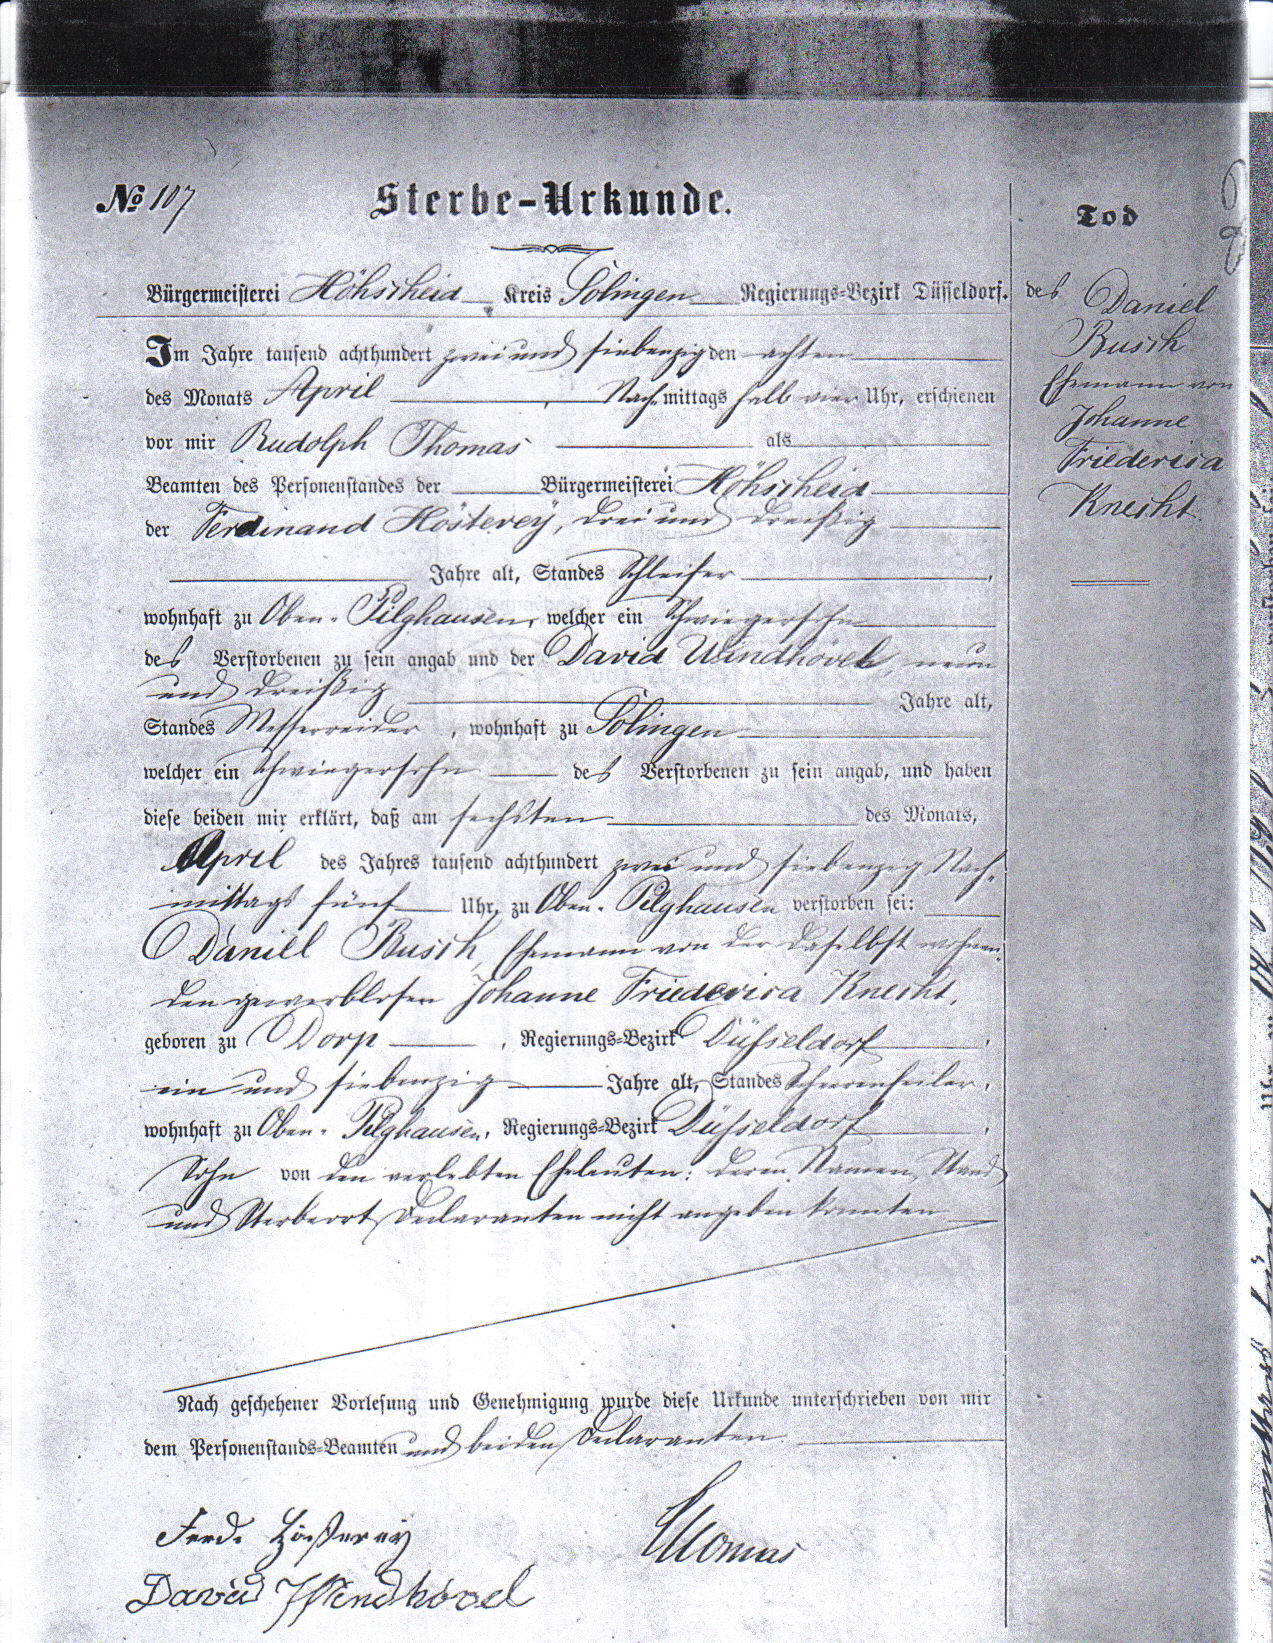 No 107
Sterbe-Urkunde.
Bürgermeisterei Höhscheid Kreis Solingen Regierungs-Bezirk Düsseldorf.
Im Jahre tausend achthundert zwei und siebenzig den achten
des Monats April Nachmittags halb vier Uhr, erschienen
vor mir Rudolph Thomas als
Beamten des Personenstandes der Bürgermeisterei Höhscheid
der Ferdinand Hösterey, drei und dreißig
Jahre alt, Standes Schleifer,
wohnhaft zu Oben-Pilghausen, welcher ein Schwiegersohn
des Verstorbenen zu sein angab und der David Windhövel, neun
und dreißig Jahre alt,
Standes Messerreider, wohnhaft zu Solingen
welcher ein Schwiegersohn des Verstorbenen zu sein angab, und haben
diese beiden mir erklärt, daß am sechsten des Monats,
April des Jahres tausend achthundert zwei und siebenzig Nach-
mittags fünf Uhr, zu Oben-Pilghausen verstorben sei:
Daniel Busch, Ehemann von der daselbst wohnen-
den gewerblosen Johanne Friederica Knecht,
geboren zu Dorp, Regierungs-Bezirk Düsseldorf,
ein und siebenzig Jahre alt, Standes Scheerenfeiler,
wohnhaft zu Oben-Pilghausen, Regierungs-Bezirk Düsseldorf,
Sohn von den verlebten Eheleuten: deren Namen, Stand
und Sterbeort Declaranten nicht angeben konnten
Nach geschehener Vorlesung und Genehmigung wurde diese Urkunde unterschrieben von mir
dem Personenstands-Beamten und beiden Declaranten.
Ferd. Hösterey
Thomas
David Windhövel
Tod
des Daniel
Busch
Ehemann von
Johanne
Friederica
Knecht.